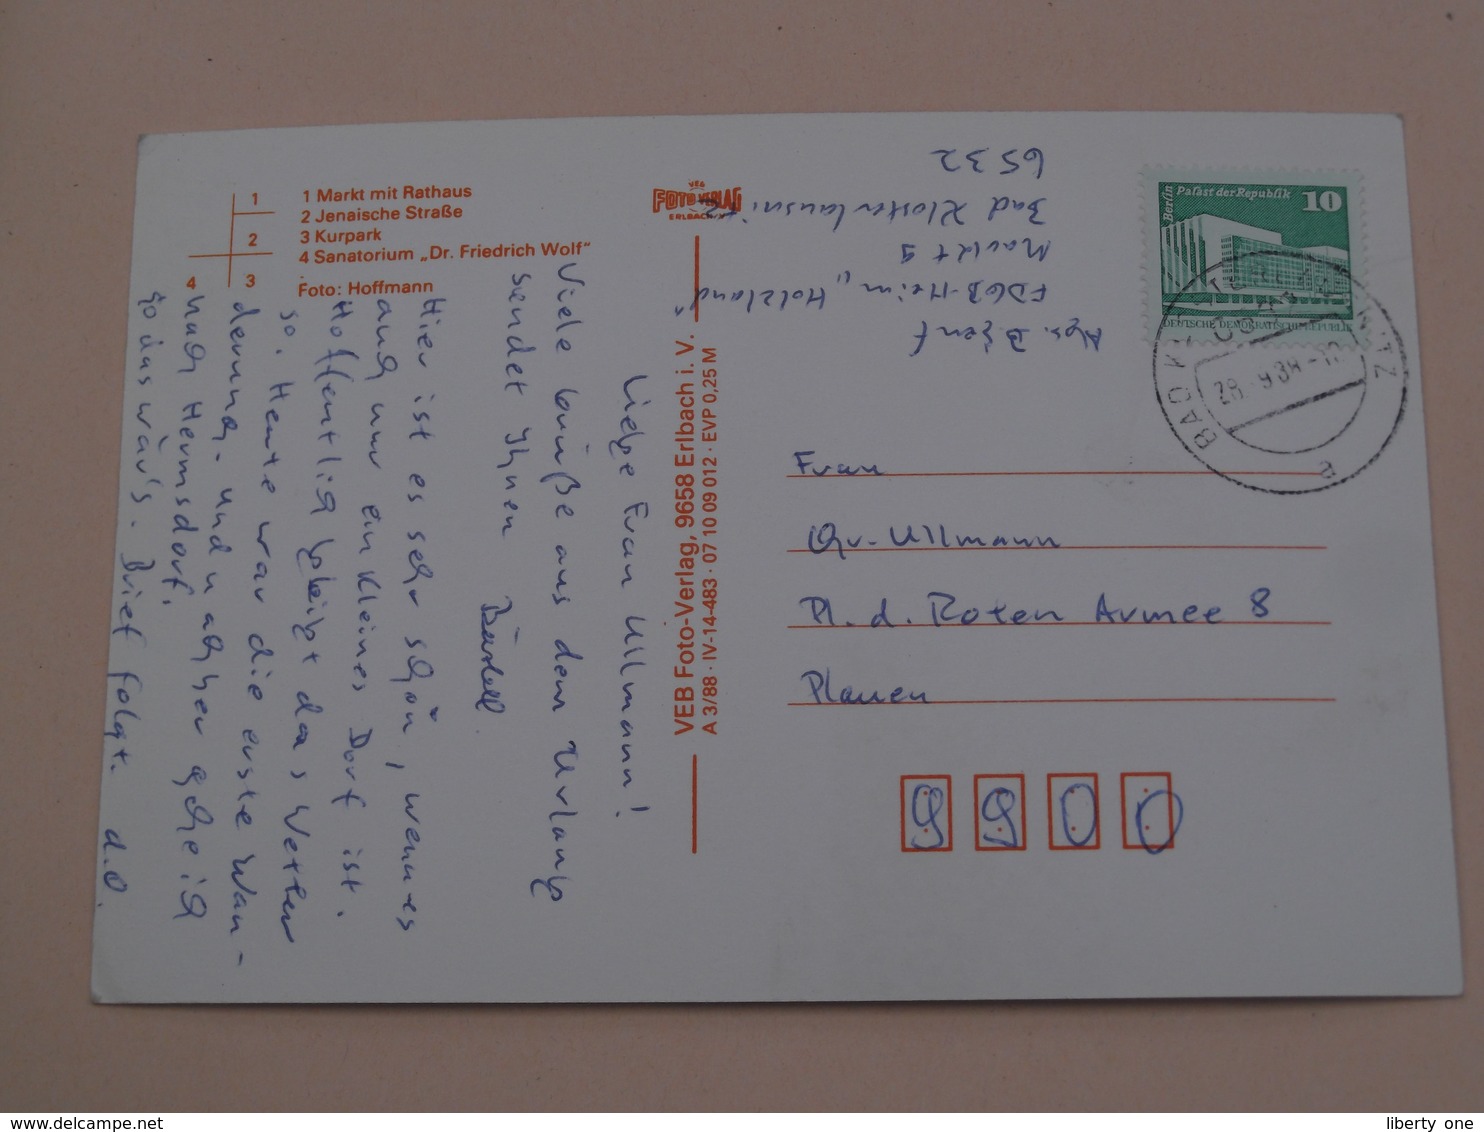 1 Markt mit Rathaus
2 Jenaische Straße
3 Kurpark
4 Sanatorium „Dr. Friedrich Wolf"
Foto: Hoffmann
1
2
4
3
VEB
FOTO-VERLAG
ERLBACH/V.
VEB Foto-Verlag, 9658 Erlbach i. V.
A 3/88 · IV-14-483 · 07 10 09 012 · EVP 0,25 M
Liebe Frau Ullmann!
Viele Grüße aus dem Urlaub
sendet Ihnen
Hier ist es sehr schön, wenn es
auch nur ein kleines Dorf ist.
Hoffentlich bleibt das Wetter
so. Heute war die erste Wan-
derung. Und nachher gehe ich
nach Hermsdorf.
So das wär's. Brief folgt. d.O.
Abs.
FDGB-Heim „Holzland"
Markt 9
Bad Klosterlausnitz
6532
Berlin Palast der Republik 10
DEUTSCHE DEMOKRATISCHE REPUBLIK
BAD KLOSTERLAUSNITZ
a
Frau
Ullmann
Pl. d. Roten Armee 8
Plauen
9900
https://www.delcampe.net
liberty one